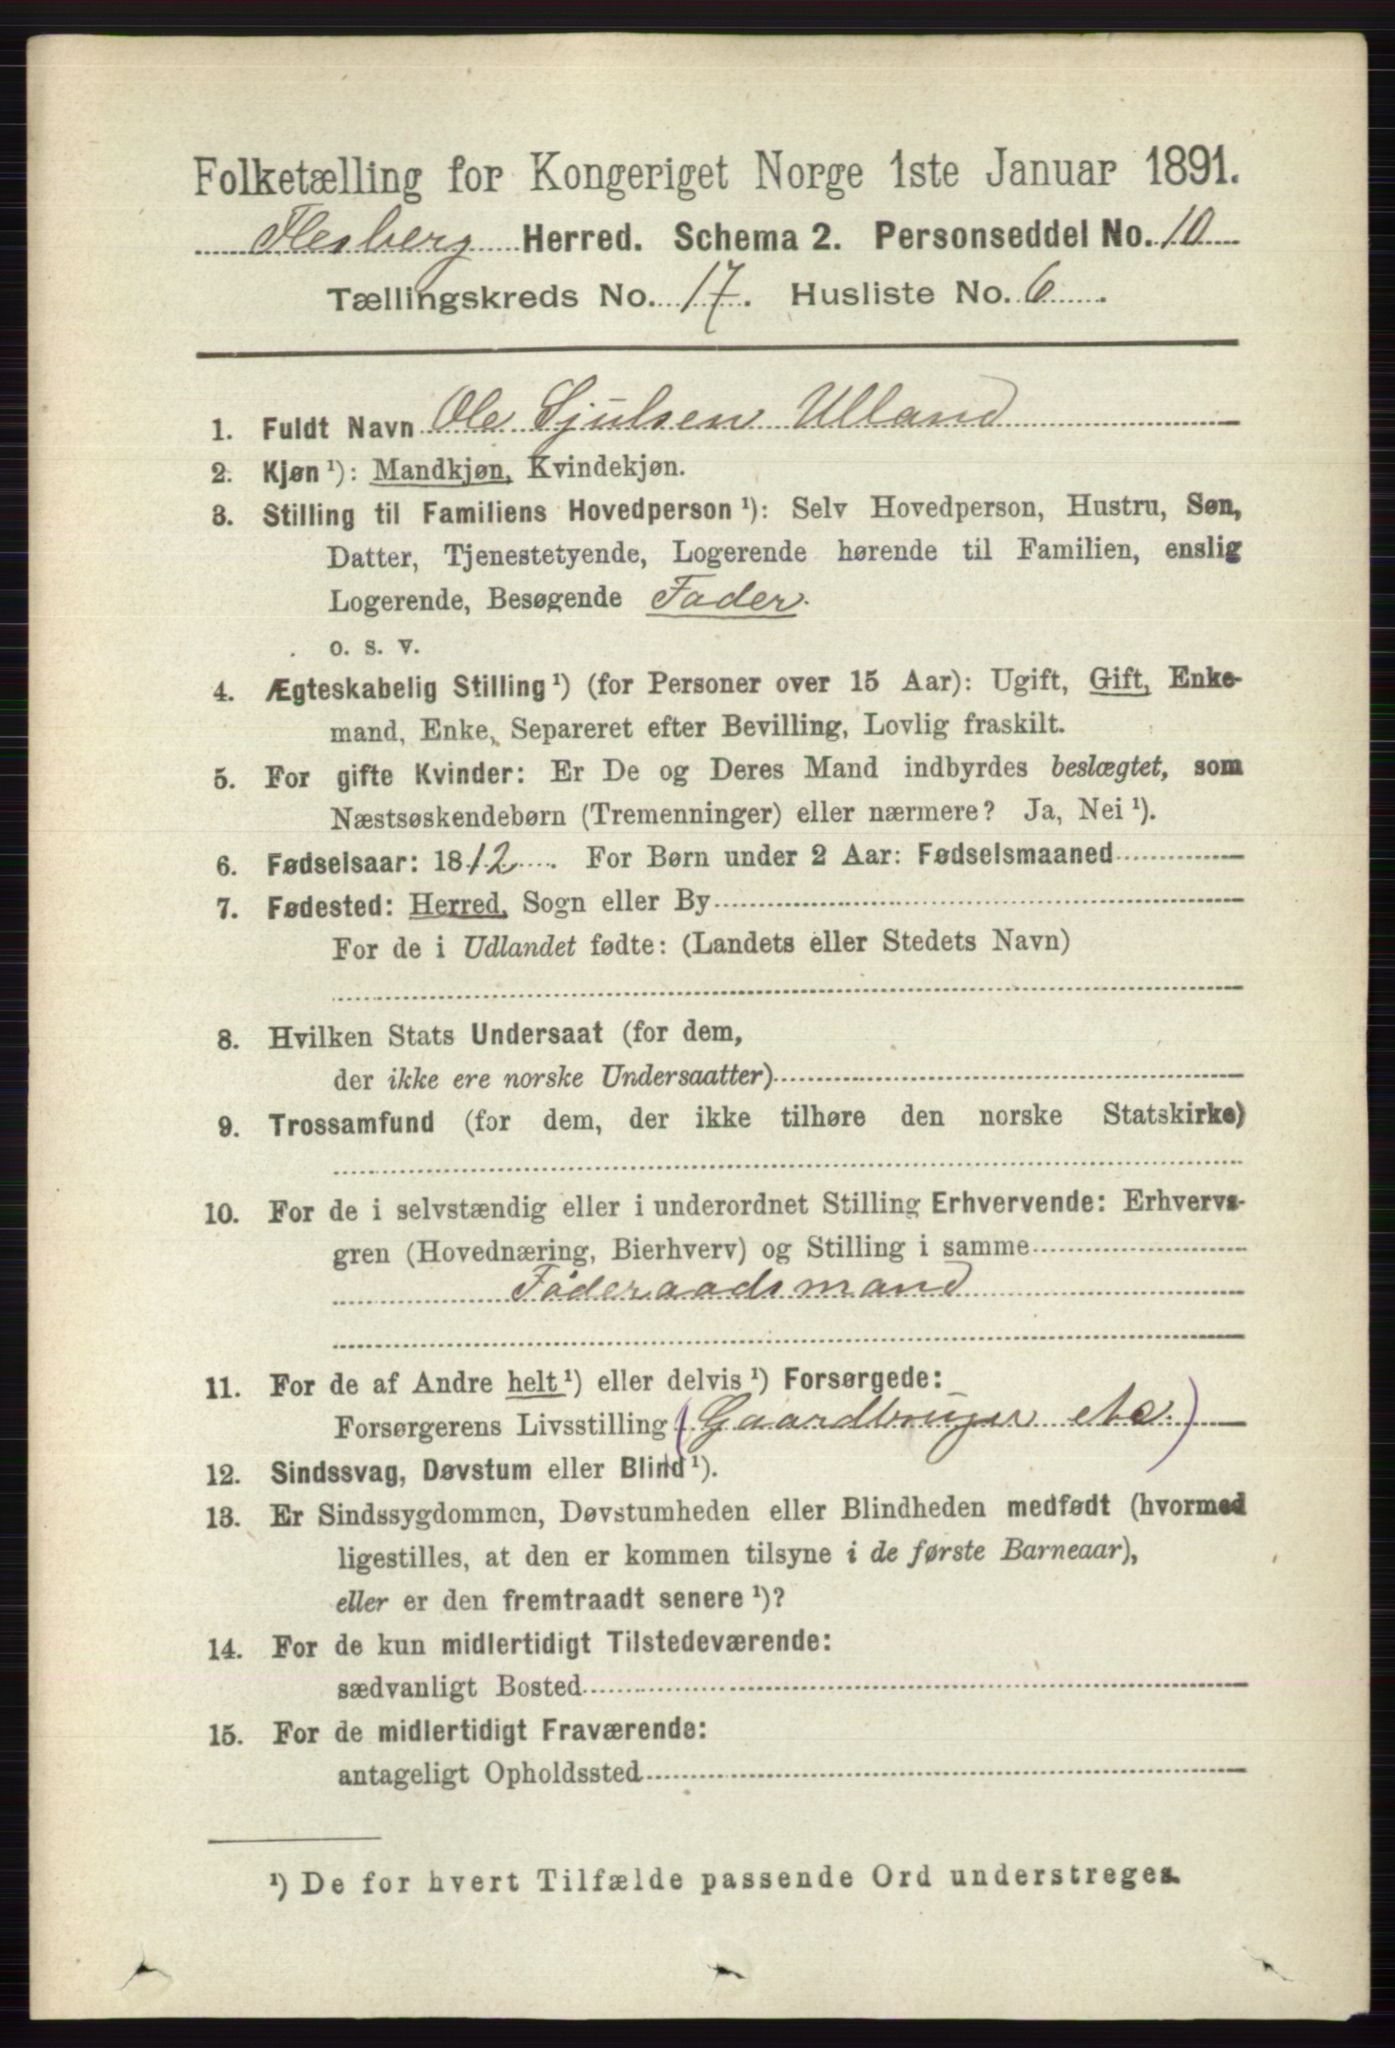 Folketælling for Kongeriget Norge 1ste Januar 1891.
Flesberg Herred. Schema 2. Personseddel No. 10
Tællingskreds No. 17. Husliste No. 6.
1. Fuldt Navn Ole Sjulsen Ulland
2. Kjøn ¹): Mandkjøn, Kvindekjøn.
3. Stilling til Familiens Hovedperson ¹): Selv Hovedperson, Hustru, Søn,
Datter, Tjenestetyende, Logerende hørende til Familien, enslig
Logerende, Besøgende Fader.
o. s. v.
4. Ægteskabelig Stilling ¹) (for Personer over 15 Aar): Ugift, Gift, Enke-
mand, Enke, Separeret efter Bevilling, Lovlig fraskilt.
5. For gifte Kvinder: Er De og Deres Mand indbyrdes beslægtet, som
Næstsøskendebørn (Tremenninger) eller nærmere? Ja, Nei ¹).
6. Fødselsaar: 1812. For Børn under 2 Aar: Fødselsmaaned
7. Fødested: Herred, Sogn eller By
For de i Udlandet fødte: (Landets eller Stedets Navn)
8. Hvilken Stats Undersaat (for dem,
der ikke ere norske Undersaatter)
9. Trossamfund (for dem, der ikke tilhøre den norske Statskirke)
10. For de i selvstændig eller i underordnet Stilling Erhvervende: Erhvervs-
gren (Hovednæring, Bierhverv) og Stilling i samme
Föderaadsmand
11. For de af Andre helt ¹) eller delvis ¹) Forsørgede:
Forsørgerens Livsstilling (Gaardbruger)
12. Sindssvag, Døvstum eller Blind ¹).
13. Er Sindssygdommen, Døvstumheden eller Blindheden medfødt (hvormed
ligestilles, at den er kommen tilsyne i de første Barneaar),
eller er den fremtraadt senere ¹)?
14. For de kun midlertidigt Tilstedeværende:
sædvanligt Bosted
15. For de midlertidigt Fraværende:
antageligt Opholdssted
¹) De for hvert Tilfælde passende Ord understreges.